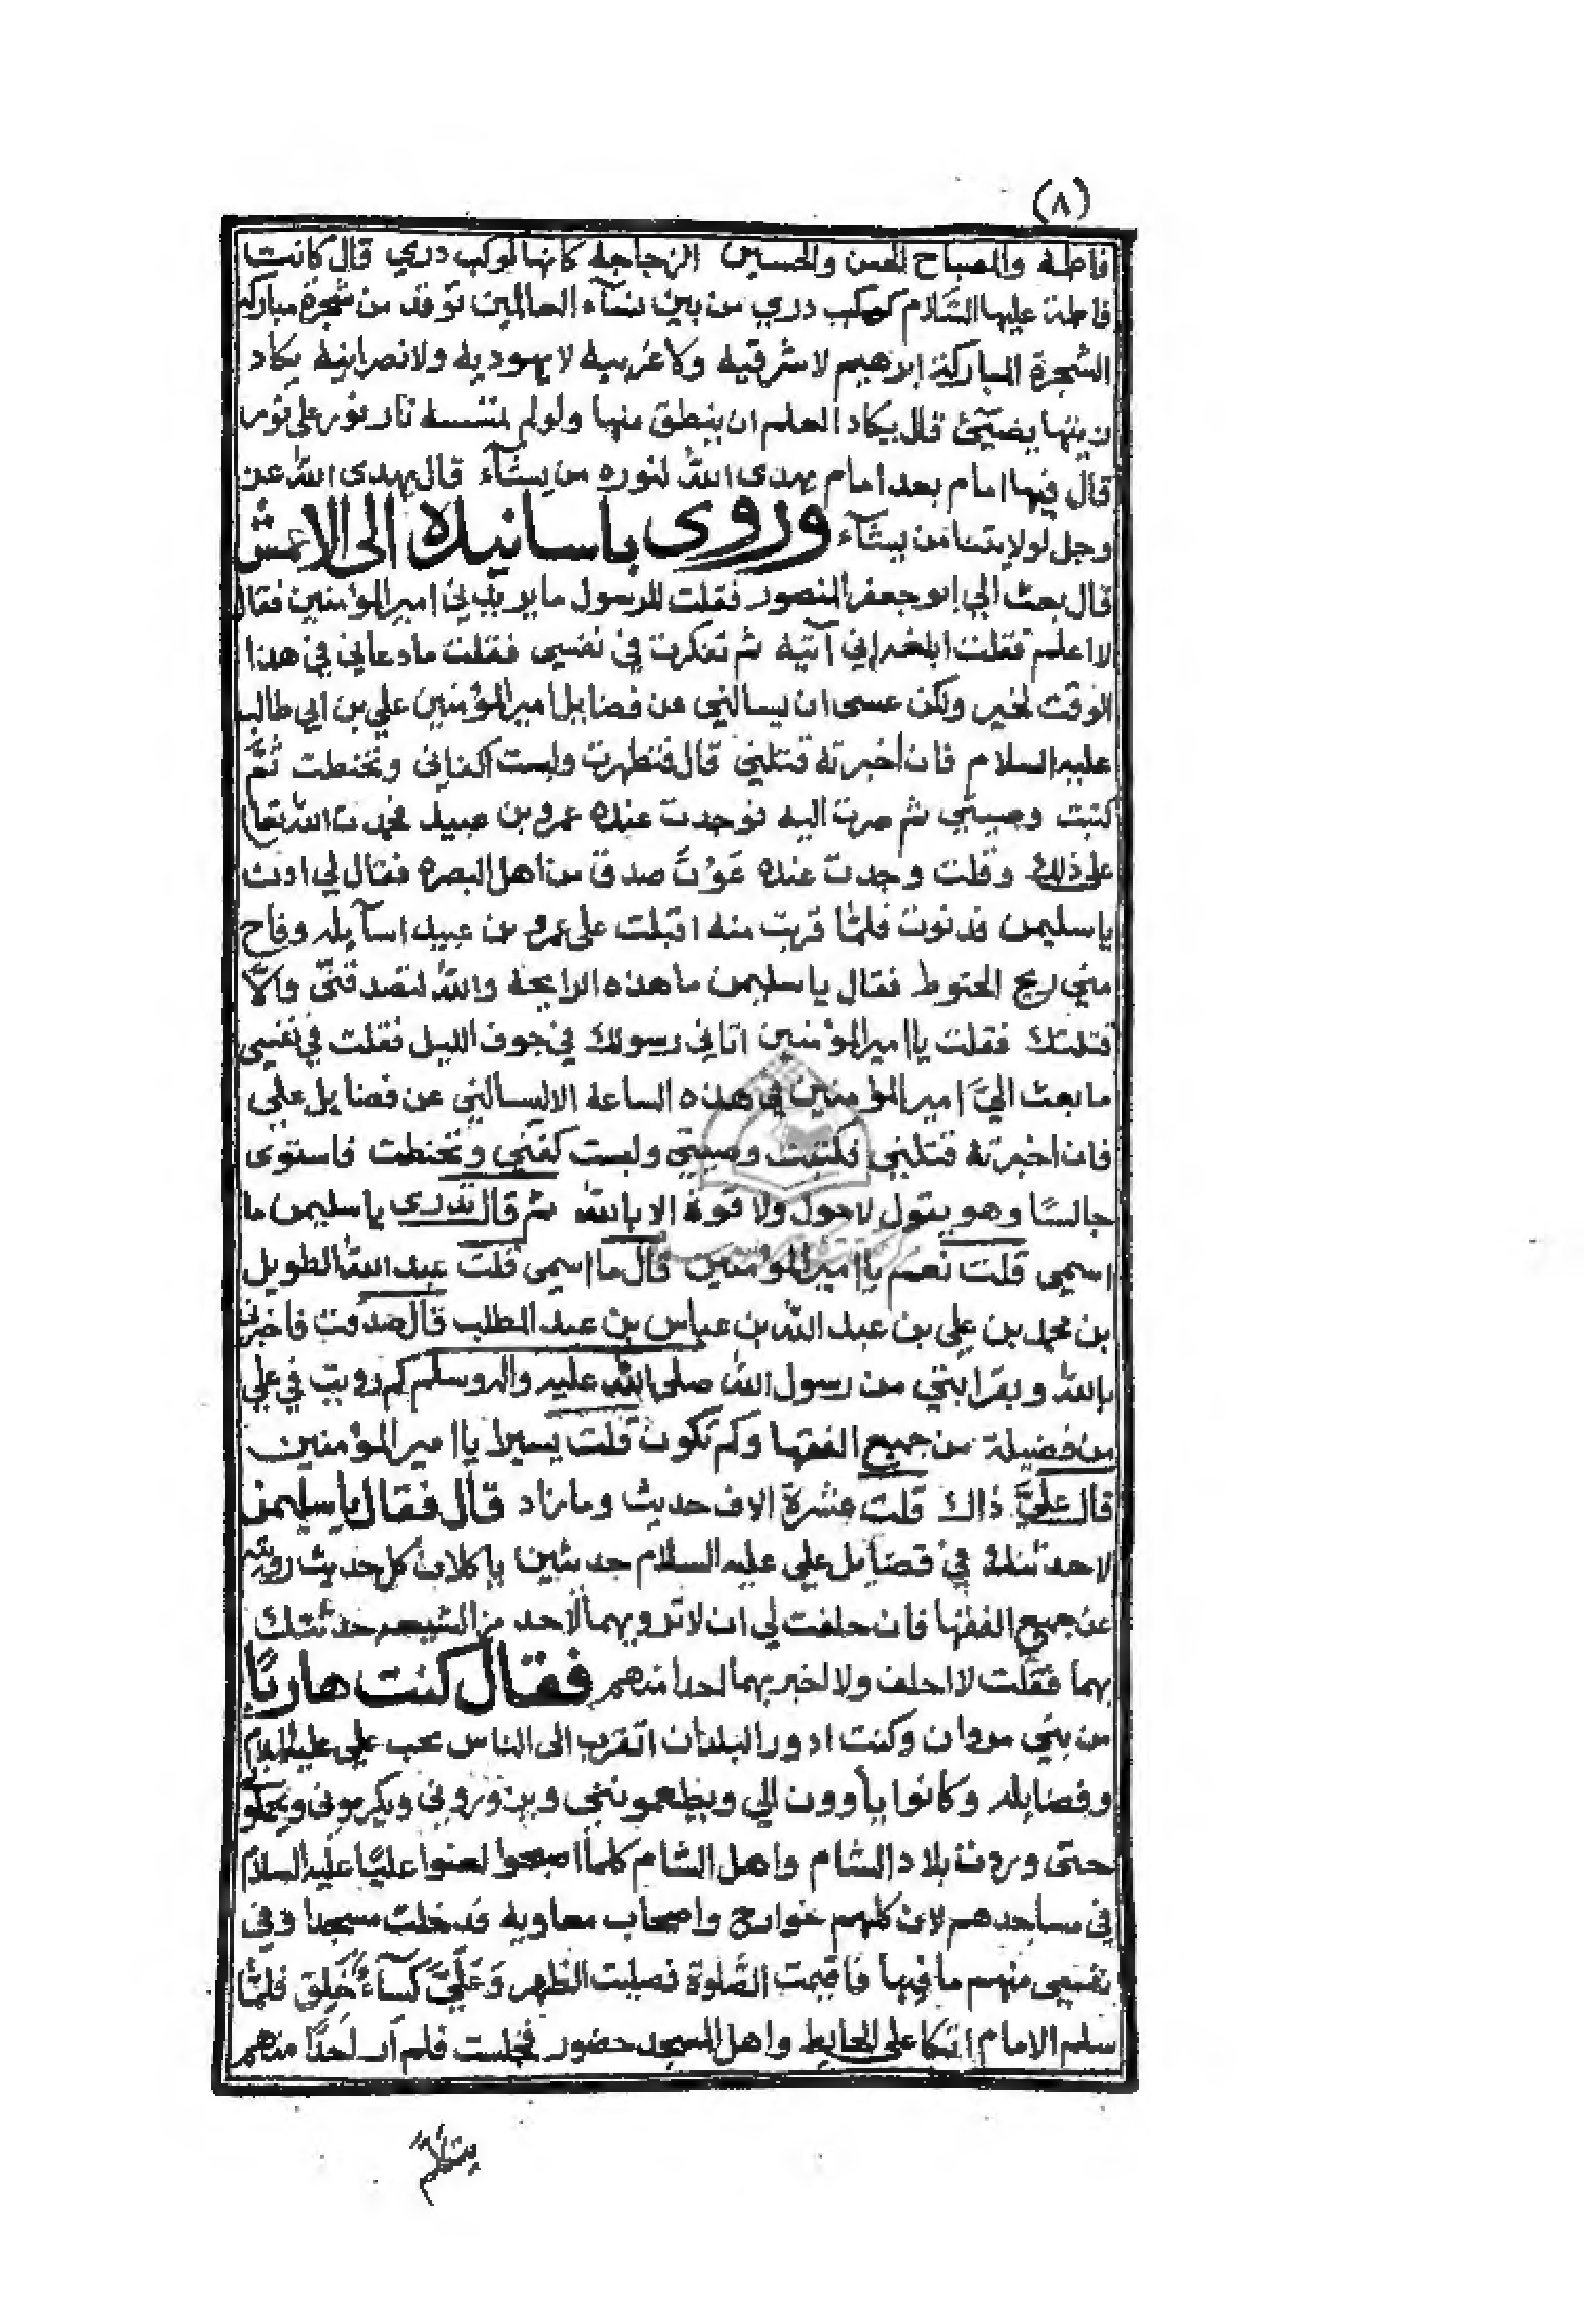 (٨)
فاطمة والمصباح الحسن والحسين الزجاجة كانها كوكب دري قال كانت
فاطمة عليها السَّلام كوكب دري من بين نسآء العالمين توقد من شجرة مباركة
الشجرة المباركة ابرهيم لا شرقيه ولا غربيه لا يهوديه ولا نصرانيه يكاد
زيتها يضيئ قال يكاد العلم ان ينطق منها ولو لم تمسسه نار نور على نور
قال فيها امام بعد امام يهدى الله لنوره من يشآء قال يهدى الله عز
وجل لولايتنا من يشآء وروى باسانيده الى الاعمش
قال بعث الي ابو جعفر المنصور فقلت للرسول ما يريد بي امير المؤمنين فقال
لا اعلم فقلت ابلغه اني آتيه ثم تفكرت في نفسي فقلت ما دعاني في هذا
الوقت لخير ولكن عسى ان يسالني عن فضايل امير المؤمنين علي بن ابي طالب
عليه السلام فان اخبرته قتلني قال فتطهرت ولبست اكفاني وتحنطت ثمَّ
كتبت وصيتي ثم صرت اليه فوجدت عنده عمرو بن عبيد فحمدت الله تعالى
على ذلك وقلت وجدت عنده عَوْنَ صدق من اهل البصره فقال لي ادن
يا سليمن فدنوت فلمَّا قربت منه اقبلت على عمرو بن عبيد اسآيله وفاح
مني ريح الحنوط فقال يا سليمن ما هذه الرايحة والله لتصدقنّي والّا
قتلتك فقلت يا امير المؤمنين اتاني رسولك في جوف الليل فقلت في نفسي
ما بعث اليَّ امير المؤمنين في هذه الساعة الا ليسالني عن فضايل علي
فان اخبرته قتلني فكتبت وصيتي ولبست كفني وتحنطت فاستوى
جالسًا وهو يقول لا حول ولا قوة الا بالله ثم قال تدرى يا سليمن ما
اسمي قلت نعم يا امير المؤمنين قال ما اسمي قلت عبد الله الطويل
بن محمد بن علي بن عبد الله بن عباس بن عبد المطلب قال صدقت فاخبرني
بالله وبقرابتي من رسول الله صلى الله عليه واله وسلم كم رويت في علي
من فضيلة من جميع الفقها وكم تكون قلت يسيرا يا امير المؤمنين
قال عليَّ ذاك قلت عشرة الاف حديث وما زاد قال فقال يا سليمن
لاحدثنك في فضايل علي عليه السلام حديثين ياكلان كل حديث رويته
عن جميع الفقها فان حلفت لي ان لا ترويهما لاحد من الشيعه حدثتك
بهما فقلت لا احلف ولا اخبر بهما احدا منهم فقال كنت هاربًا
من بني مروان وكنت ادور البلدان اتقرب الى الناس بحب علي عليه السلام
وفضايله وكانوا يأوون الي ويطعمونني ويزوروني ويكرموني
حتى وردت بلاد الشام واهل الشام كلما اصبحوا لعنوا عليًا عليه السلام
في مساجدهم لان كلهم خوارج واصحاب معاويه فدخلت مسجدا وفي
نفسي منهم ما فيها فاقيمت الصَّلوة فصليت الظهر وَعَلَيَّ كسآءٌ خَلِق فلمَّا
سلم الامام اتكا على الحايط واهل المسجد حضور فجلست فلم أر احدًا منهم
يتكلم